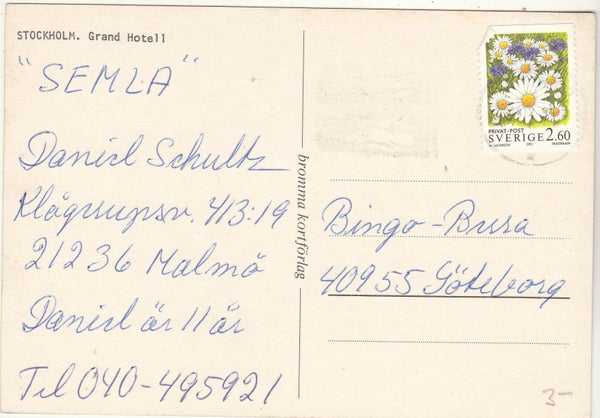 STOCKHOLM. Grand Hotell
"SEMLA"
Daniel Schultz
Klågerupsv. 413:19
21236 Malmö
Daniel är 11 år
Tel 040-495921
bromma kortförlag
PRIVAT-POST
SVERIGE 2.60
Bingo-Busa
40955 Göteborg
3-